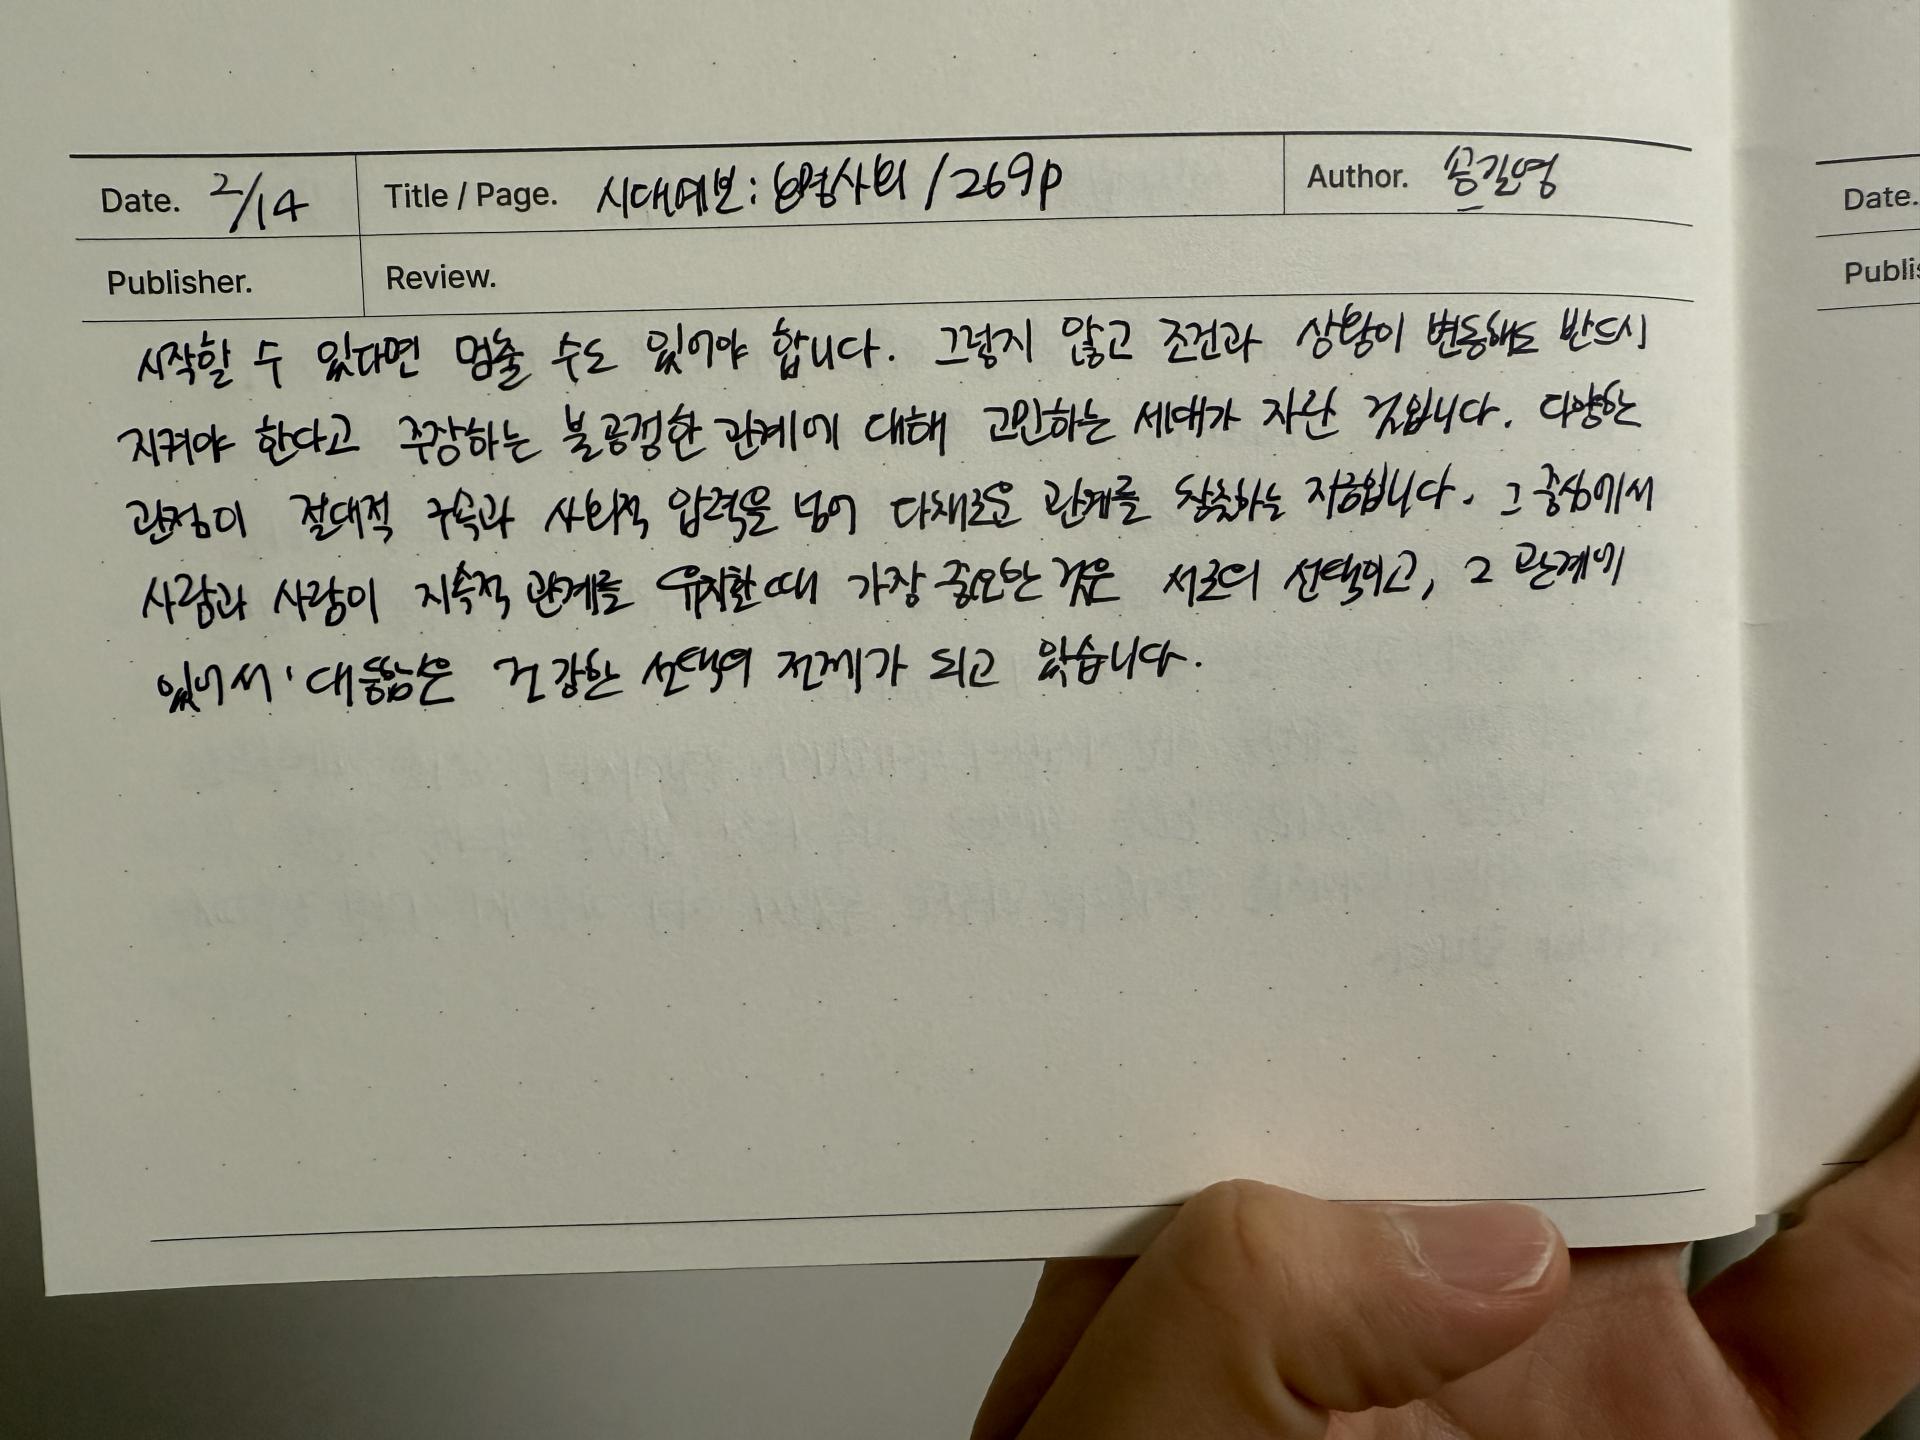 Date. 2/14 Title / Page. 시대예보: 호명사회 / 269p Author. 송길영 Date.
Publisher. Review.
시작할 수 있다면 멈출 수도 있어야 합니다. 그렇지 않고 조건과 상황이 변동해도 반드시
지켜야 한다고 주장하는 불공정한 관계에 대해 고민하는 세대가 자란 것입니다. 다양한
관점이 절대적 구속과 사회적 압력을 넘어 다채로운 관계를 창출하는 지금입니다. 그 중심에서
사람과 사람이 지속적 관계를 유지할 때 가장 중요한 것은 서로의 선택이고, 그 관계에
있어서 '대등함은 건강한 선택의 전제가 되고 있습니다.